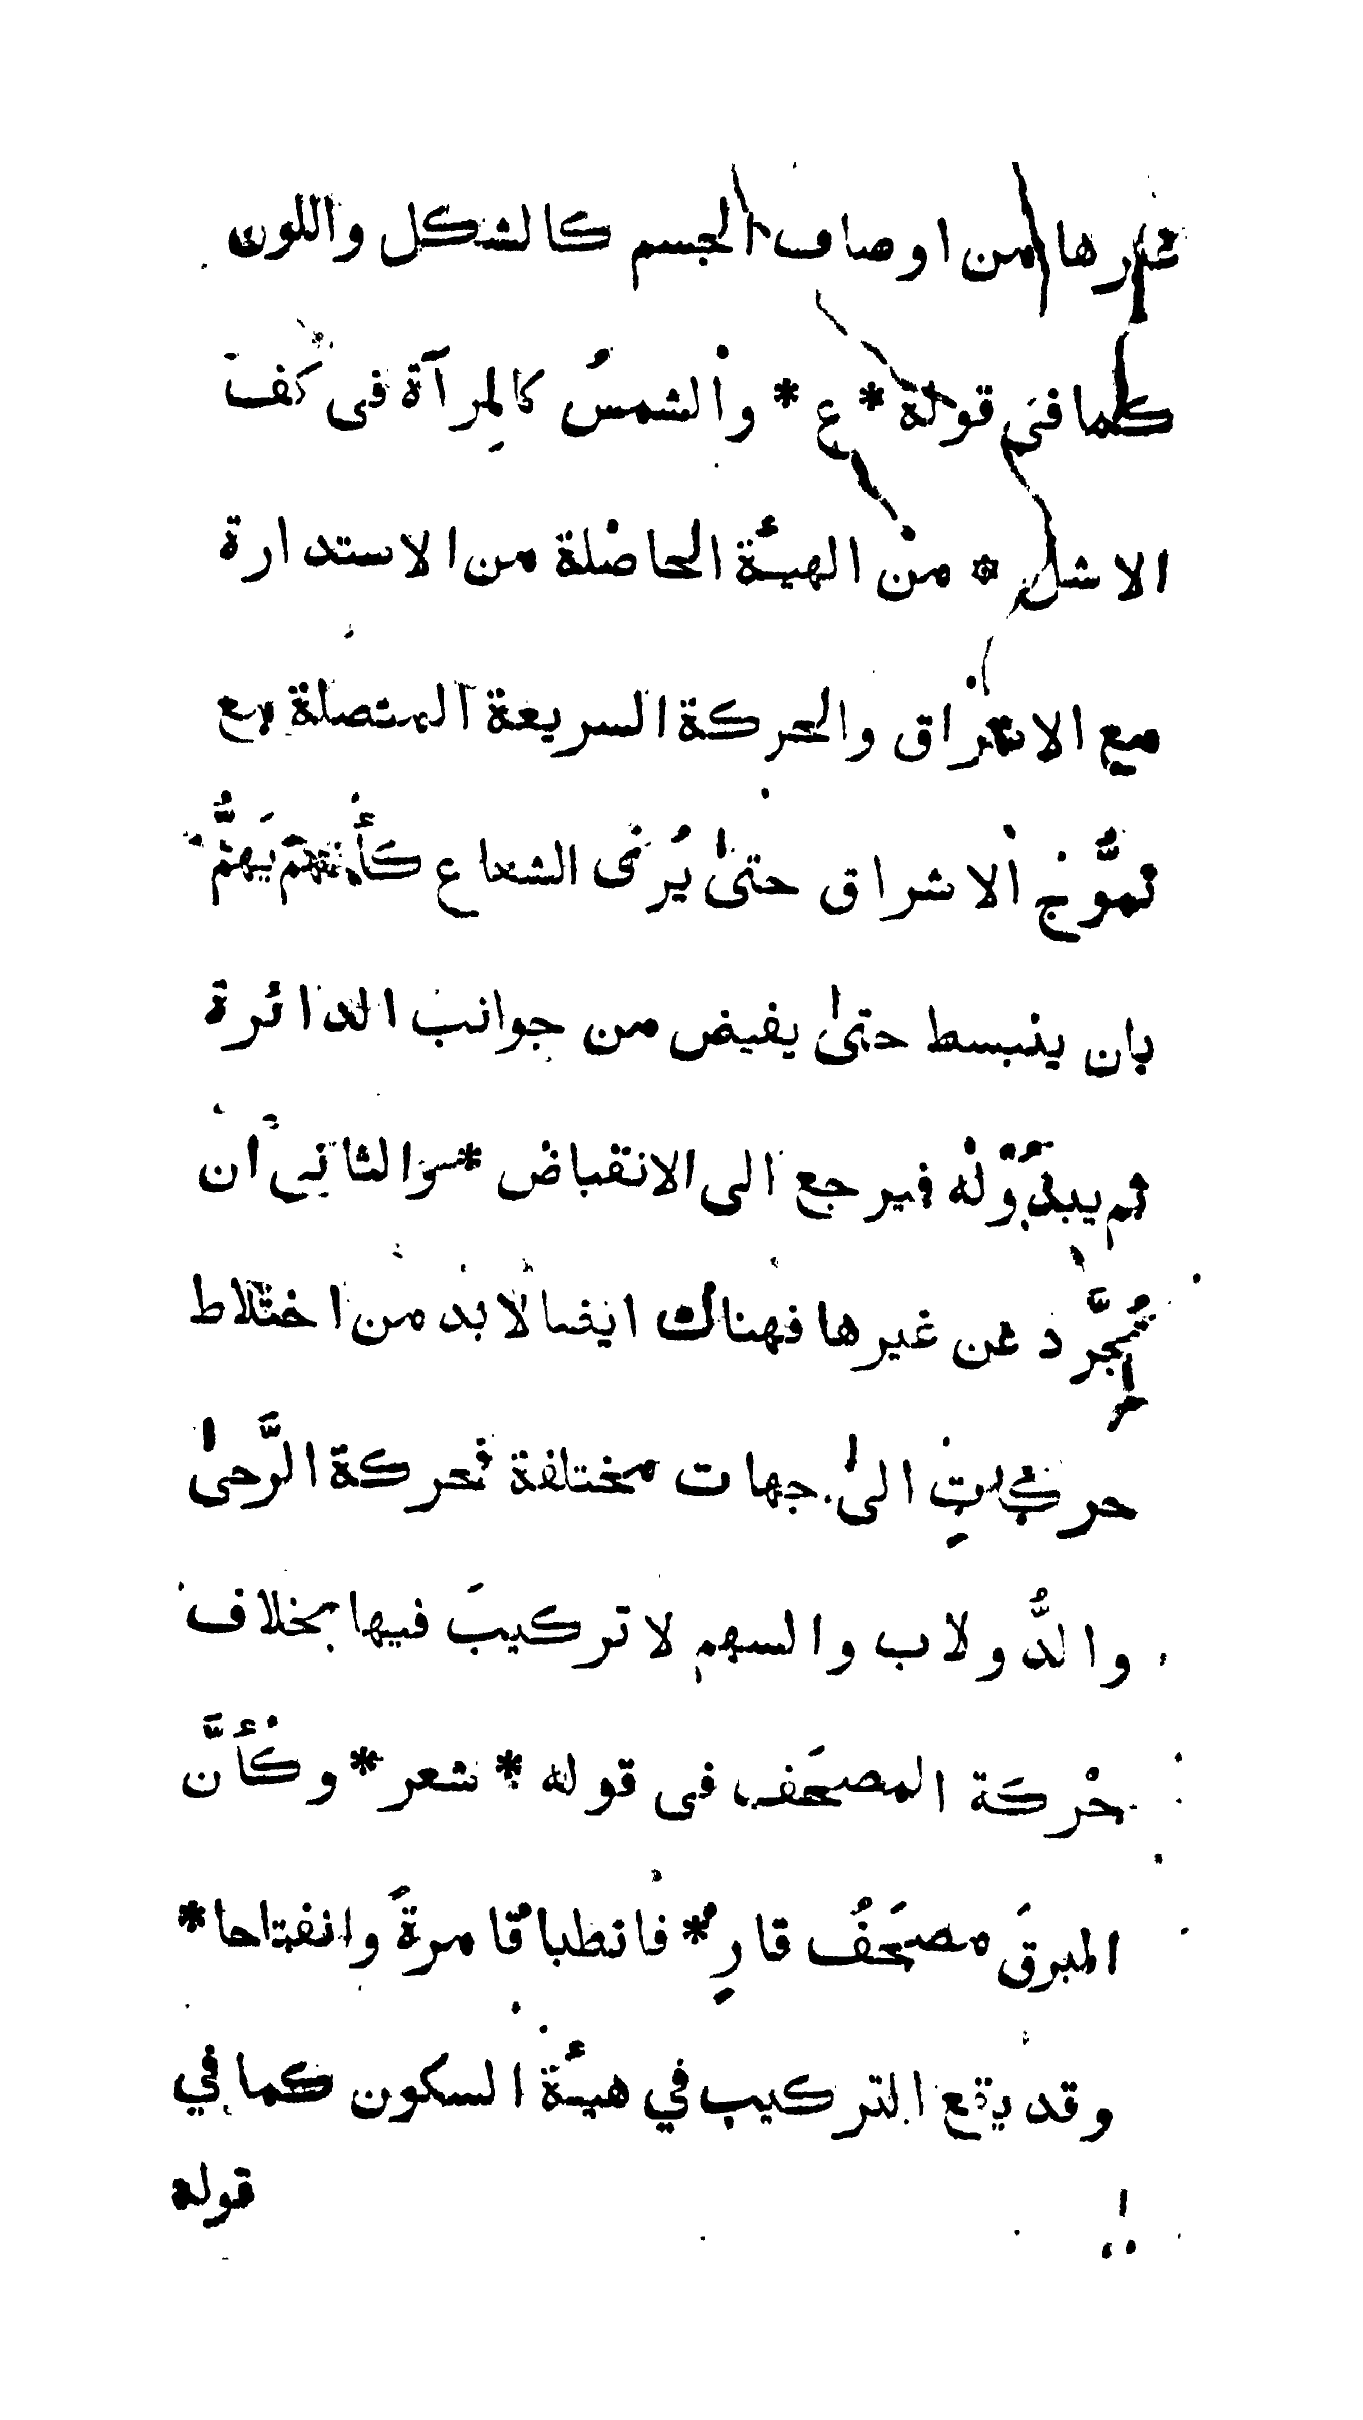 غيرها من اوصاف الجسم كالشكل واللون
كما فى قوله * ع * والشمسُ كالمِرآة فى كف
الاشل * من الهيئة الحاصلة من الاستدارة
مع الاشراق والحركة السريعة المتصلة مع
تموُّج الاشراق حتىٰ يُرى الشعاع كأنه يَهُمُّ
بان ينبسط حتىٰ يفيض من جوانب الدائرة
ثم يبدُوَ له فيرجع الى الانقباض * والثانى ان
تُجرَّد عن غيرها فهناك ايضا لابد من اختلاط
حركاتٍ الىٰ جهات مختلفة فحركة الرَّحىٰ
والدُّولاب والسهم لا تركيبَ فيها بخلاف
حركَة المصحَف فى قوله * شعر * وكأَنَّ
البرقَ مصحَفُ قارٍ * فانطباقا مرةً وانفتاحا *
وقد يقع التركيب في هيئة السكون كما في
قوله